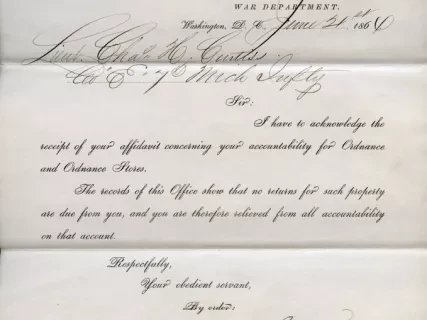 WAR DEPARTMENT.
Washington, D. C. June 21st 1864
Lieut. Chas H. Curtis
Co "E" 7th Mich Infty
Sir:
I have to acknowledge the
receipt of your affidavit concerning your accountability for Ordnance
and Ordnance Stores.
The records of this Office show that no returns for such property
are due from you, and you are therefore relieved from all accountability
on that account.
Respectfully,
Your obedient servant,
By order: